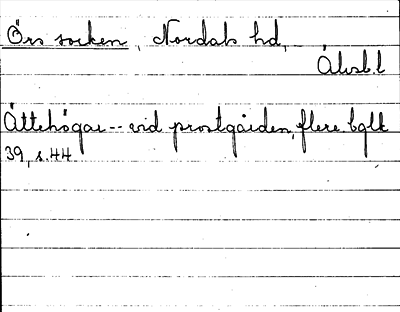 Örs socken, Nordals hd,
Älvsb.l
Ättehögar -- vid prostgården, flere bglk
39, s. 44